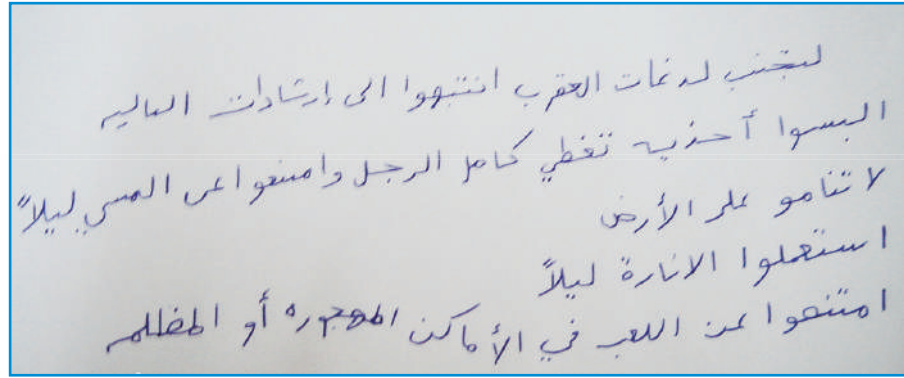 لتجنب لدغات العقرب انتبهوا الى إرشادات التاليه
البسوا أحذيه تغطي كامل الرجل وامتنعوا عن المشي ليلاً
لا تنامو على الأرض
استعملوا الانارة ليلاً
امتنعوا عن اللعب في الأماكن المهجوره أو المظلمه